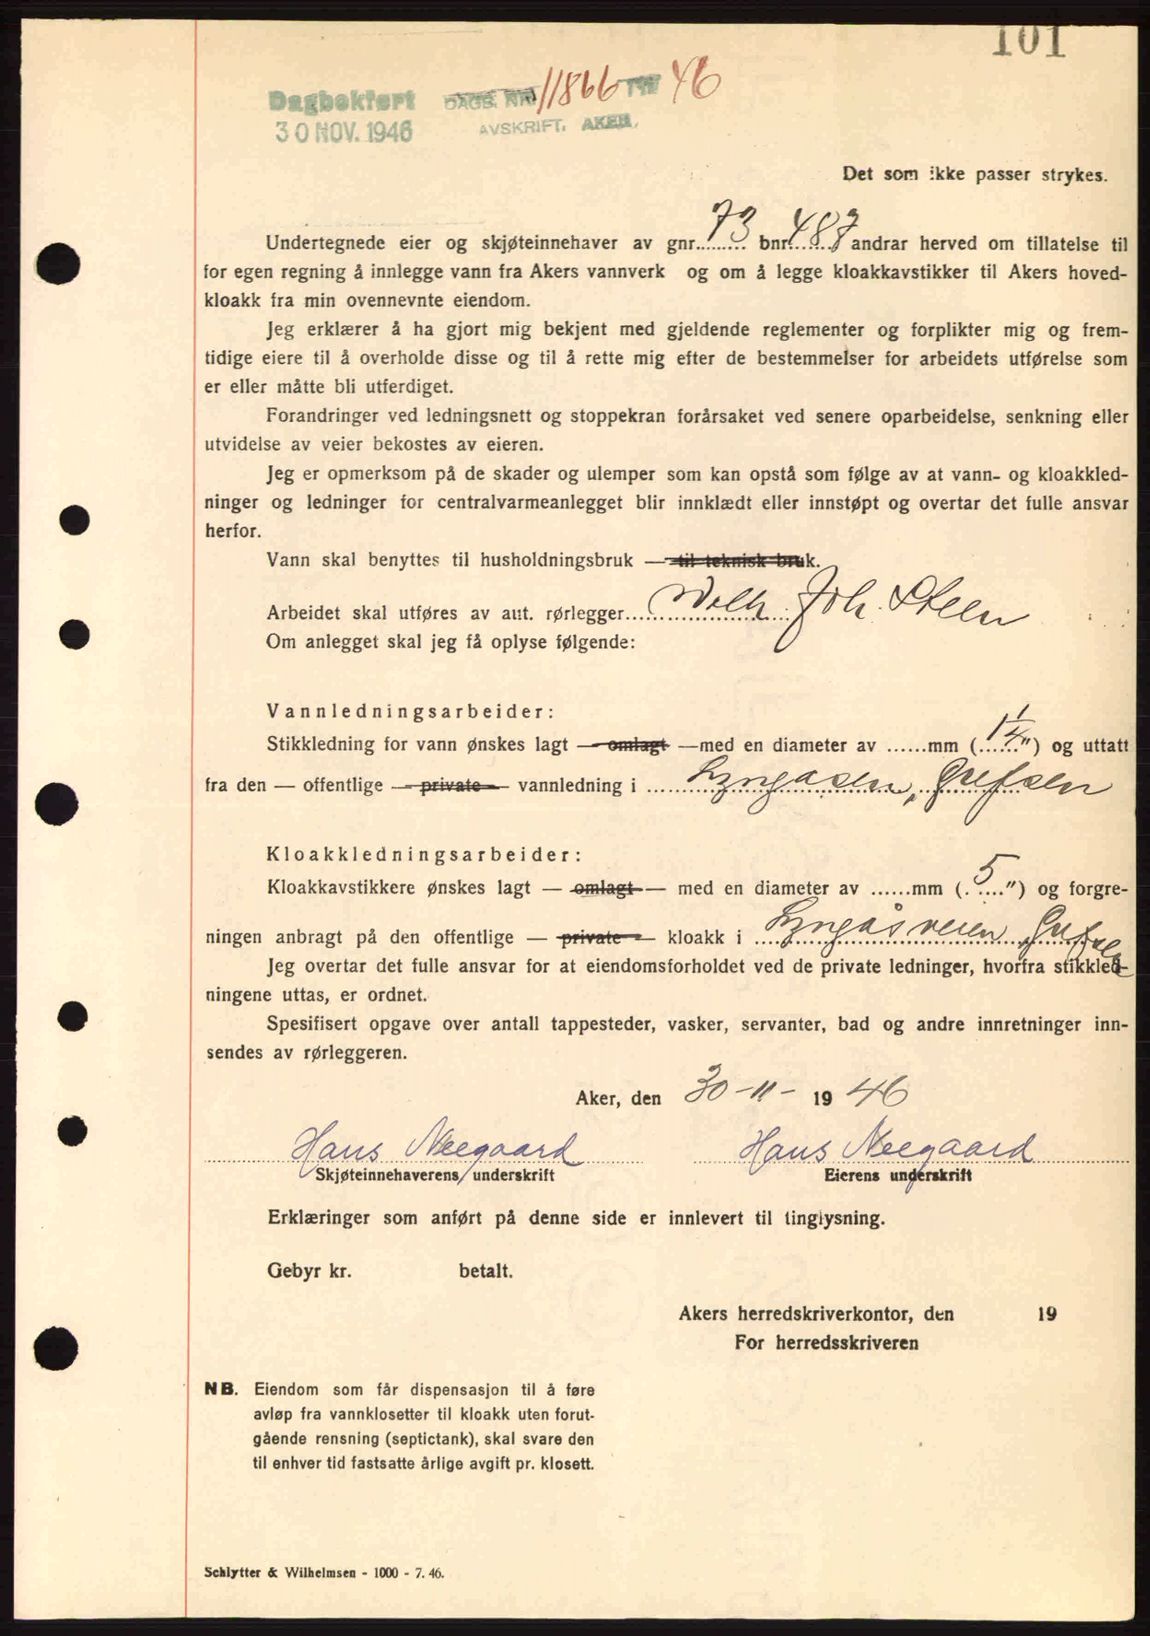 101
Dagbokført DAGB. NR. 11866 19 46
30 NOV. 1946 AVSKRIFT. AKER.
Det som ikke passer strykes.
Undertegnede eier og skjøteinnehaver av gnr. 73 bnr. 487 andrar herved om tillatelse til
for egen regning å innlegge vann fra Akers vannverk og om å legge kloakkavstikker til Akers hoved-
kloakk fra min ovennevnte eiendom.
Jeg erklærer å ha gjort mig bekjent med gjeldende reglementer og forplikter mig og frem-
tidige eiere til å overholde disse og til å rette mig efter de bestemmelser for arbeidets utførelse som
er eller måtte bli utferdiget.
Forandringer ved ledningsnett og stoppekran forårsaket ved senere oparbeidelse, senkning eller
utvidelse av veier bekostes av eieren.
Jeg er opmerksom på de skader og ulemper som kan opstå som følge av at vann- og kloakkled-
ninger og ledninger for centralvarmeanlegget blir innklædt eller innstøpt og overtar det fulle ansvar
herfor.
Vann skal benyttes til husholdningsbruk — til teknisk bruk.
Arbeidet skal utføres av aut. rørlegger Wilh. Joh. Steen
Om anlegget skal jeg få oplyse følgende:
Vannledningsarbeider:
Stikkledning for vann ønskes lagt — omlagt — med en diameter av ......mm (1 1/4") og uttatt
fra den — offentlige — private — vannledning i Lyngåsen, Grefsen
Kloakkledningsarbeider:
Kloakkavstikkere ønskes lagt — omlagt — med en diameter av ......mm (5") og forgre-
ningen anbragt på den offentlige — private — kloakk i Lyngåsveien Grefsen
Jeg overtar det fulle ansvar for at eiendomsforholdet ved de private ledninger, hvorfra stikkled-
ningene uttas, er ordnet.
Spesifisert opgave over antall tappesteder, vasker, servanter, bad og andre innretninger inn-
sendes av rørleggeren.
Aker, den 30-11- 1946
Hans Neegaard Hans Neegaard
Skjøteinnehaverens underskrift Eierens underskrift
Erklæringer som anført på denne side er innlevert til tinglysning.
Gebyr kr. betalt.
Akers herredskriverkontor, den 19
For herredsskriveren
NB. Eiendom som får dispensasjon til å føre
avløp fra vannklosetter til kloakk uten forut-
gående rensning (septictank), skal svare den
til enhver tid fastsatte årlige avgift pr. klosett.
Schlytter & Wilhelmsen - 1000 - 7. 46.